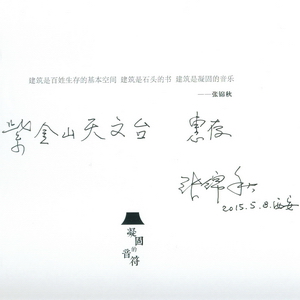 建筑是百姓生存的基本空间 建筑是石头的书 建筑是凝固的音乐
——张锦秋
紫金山天文台 惠存
张锦秋
2015.5.8.西安
凝固的音符